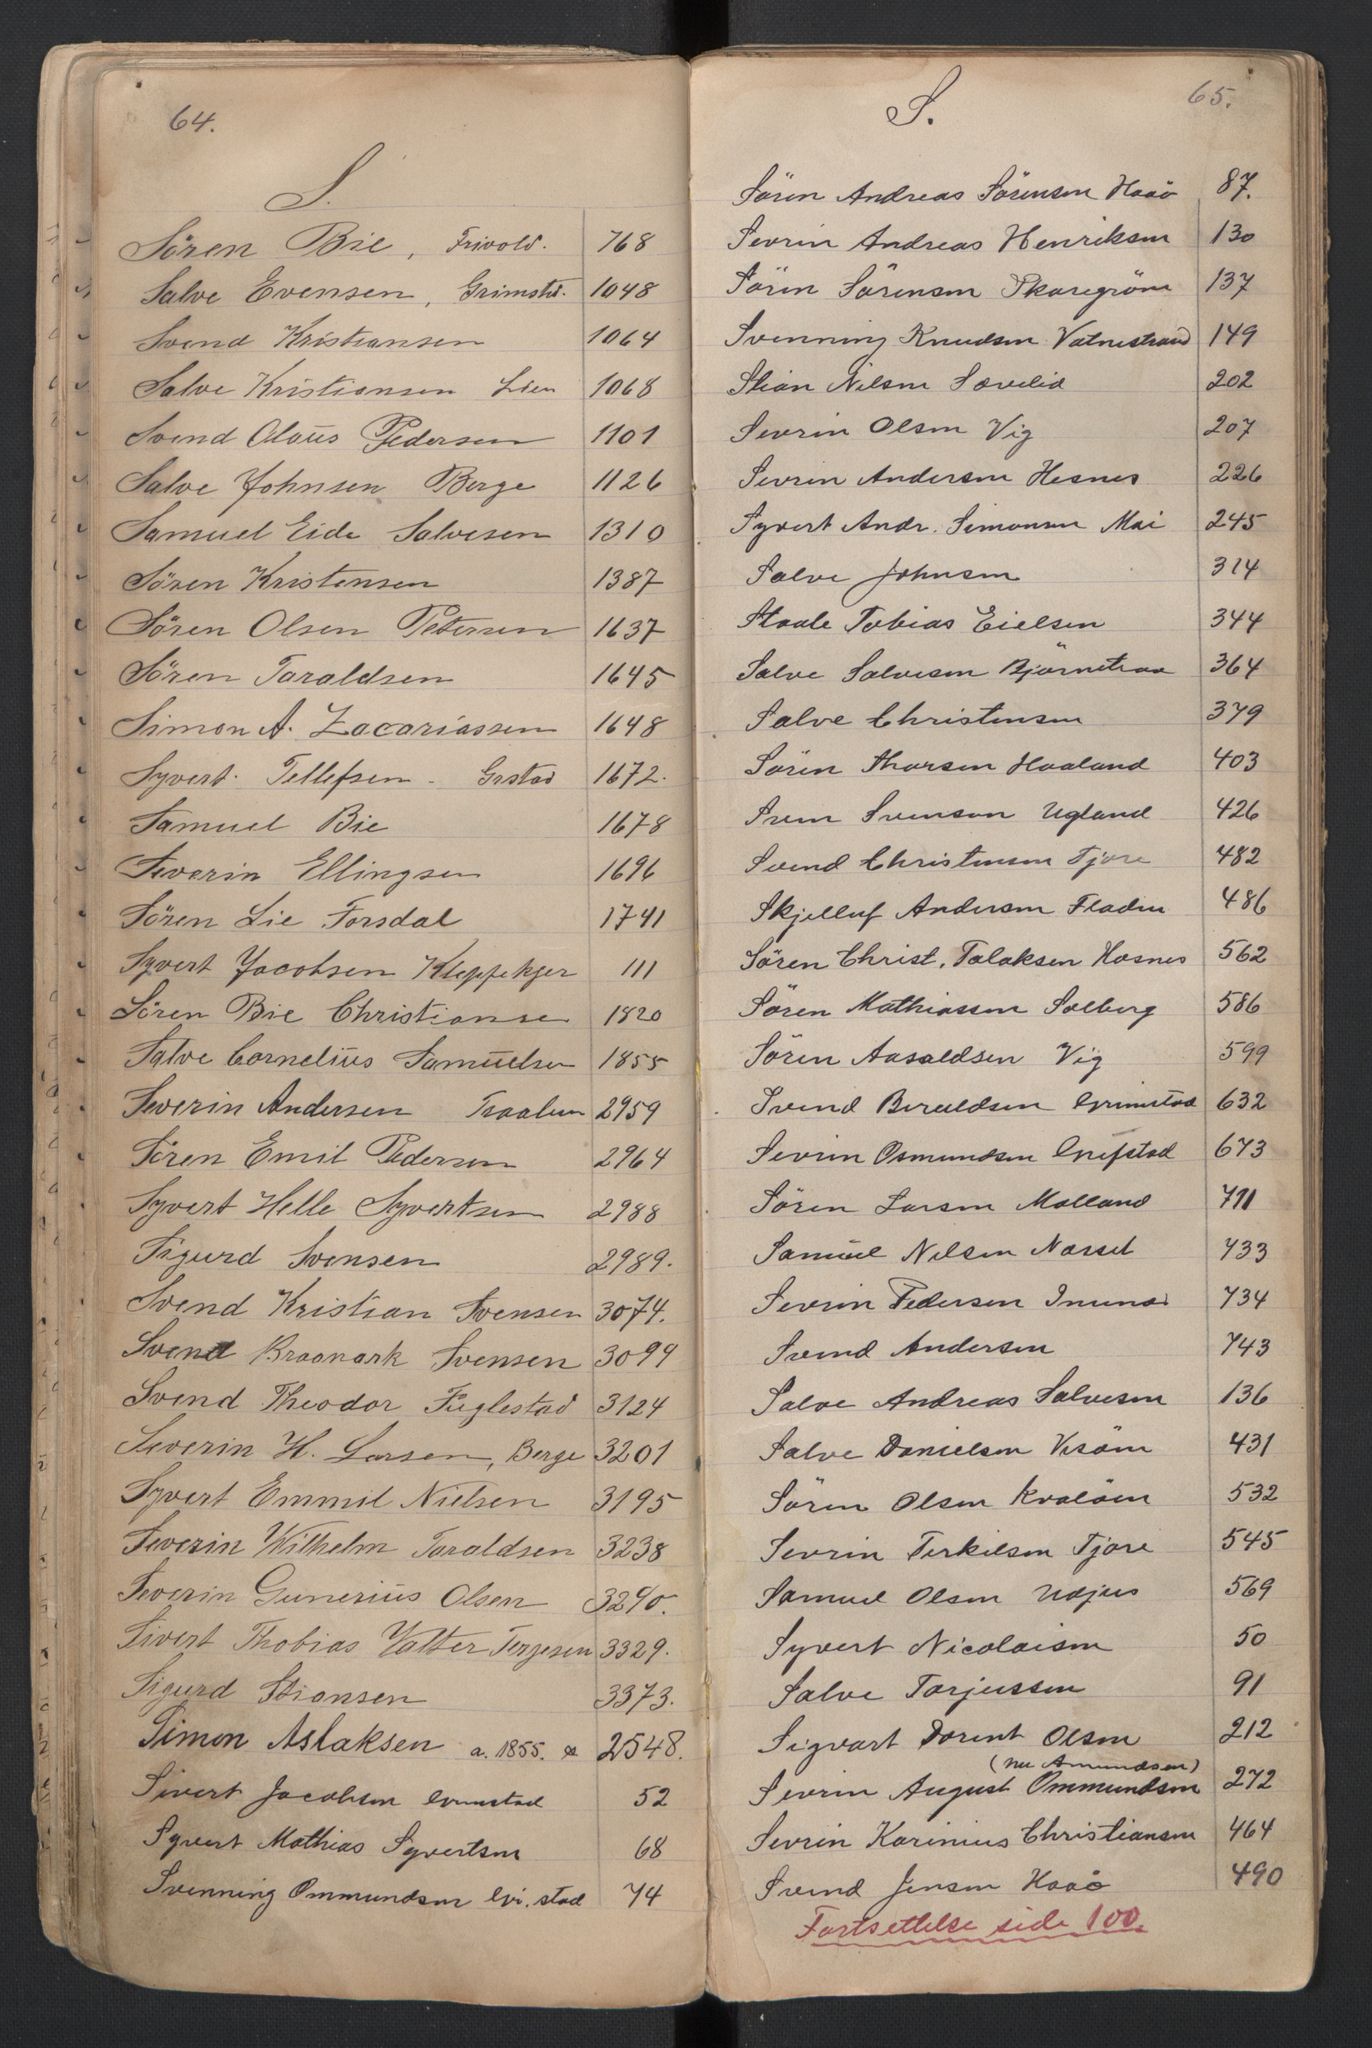 64.
S.
Sören Bie, Frivold. 768
Salve Evensen, Grimstd. 1048
Svend Kristiansen 1064
Salve Kristiansen Lien 1068
Svend Olaüs Pedersen 1101
Salve Johnsen Berge 1126
Samuel Eide Salvesen 1310
Sören Kristensen 1387
Sören Olsen Petersen 1637
Sören Taraldsen 1645
Simon A. Zacariassen 1648
Syvert. Tellefsen - Grstad 1672.
Samuel Bie 1678
Severin Ellingsen 1696
Sören Lie Forsdal 1741
Syvert Jacobsen Kleppekjer 111
Sören Bie Christianse 1820
Salve Cornelius Samuelsen 1855
Severin Andersen 2959
Sören Emil Pedersen 2964
Syvert Helle Syvertsen 2988
Sigurd Svensen 2989.
Svend Kristian Svensen 3074.
Svend Svensen 3099
Svend Theodor Fuglestad 3124
Severin H. Larsen, Berge 3201
Syvert Emmil Nielsen 3195
Severin Wilhelm Taraldsen 3238
Severin Gunerius Olsen 3290.
Sivert Thobias Valter Terjesen 3329.
Sigurd Stiansen 3373.
Simon Aslaksen a. 1855. 2548.
Sivert Jacobsen Grimstad 52
Syvert Mathias Syvertsen 68
Svenning Ommundsen Gri.stad 74
65.
S.
Sören Andreas Sörensen Haaö 87.
Sevrin Andreas Henriksen 130
Sören Sörensen Skaregröm 137
Svenning Knudsen Vatnestrand 149
Stian Nilsen Sævelid 202
Sevrin Olsen Vig 207
Sevrin Andersen Hesnes 226
Syvert Andr. Simonsen Moi 245
Salve Johnsen 314
Staale Tobias Eielsen 344
Salve Salvesen Bjørnetraa 364
Salve Christensen 379
Sören Thorsen Haaland 403
Sven Svenson Ugland 426
Svend Christensen Tjore 482
Skjelluf Andersen Fladen 486
Sören Christ. Talaksen Hasnes 562
Sören Mathiassen Solberg 586
Sören Aasaldsen Vig 599
Svend Beruldsen Grimstad 632
Sevrin Osmundsen Grefstad 673
Sören Larsen Molland 711
Samuel Nilsen Narsel 733
Sevrin Pedersen 734
Svend Andersen 743
Salve Andreas Salvesen 136
Salve Danielsen Vesöen 431
Sören Olsen Kvaløen 532
Sevrin Terkilsen Tjore 545
Samuel Olsen Udjus 569
Syvert Nicolaisen 50
Salve Torjussen 91
Sigvart Dorent Olsen 212
(nu Amundsen)
Sevrin August Ommundsen 272
Sevrin Karinius Christiansen 464
Svend Jensen Haaö 490
Fortsettelse side 100.